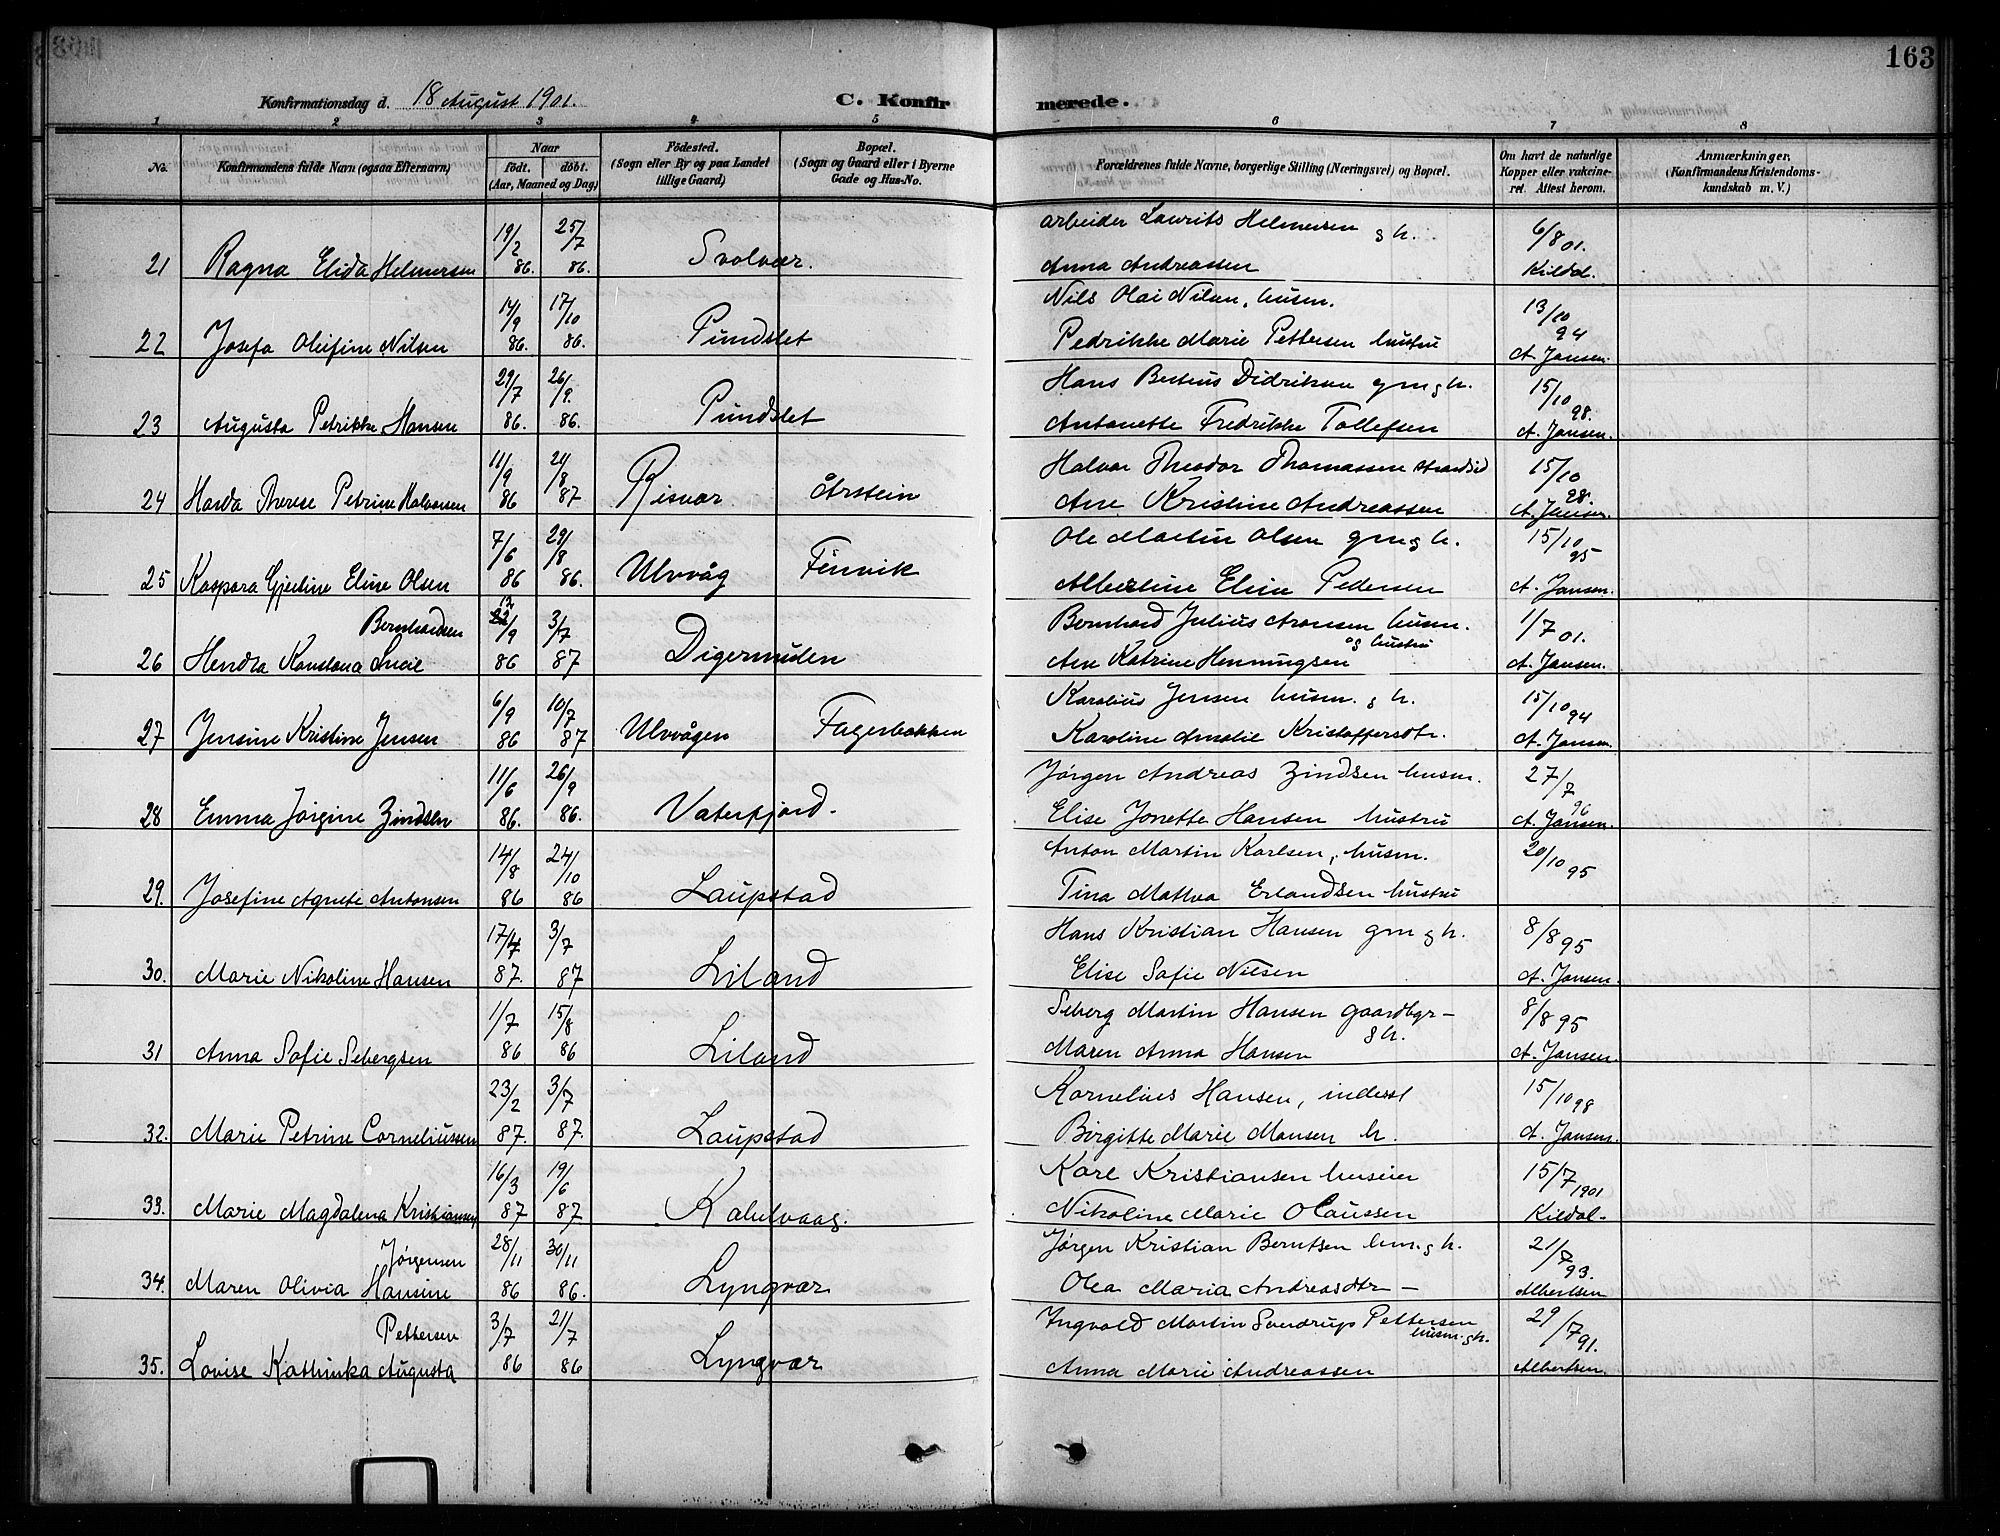 163
Konfirmationsdag d. 18 August 1901. C. Konfirmerede.
1 2 3 4 5 6 7 8
No. Konfirmandens fulde Navn (ogsaa Efternavn) Naar født. døbt. (Aar, Maaned og Dag) Fødested. (Sogn eller By og paa Landet tillige Gaard) Bopæl. (Sogn og Gaard eller i Byerne Gade og Hus-No. Forældrenes fulde Navne, borgerlige Stilling (Næringsvei) og Bopæl. Om havt de naturlige Kopper eller vaksineret. Attest herom. Anmærkninger. (Konfirmandens Kristendomskundskab m. V.)
19/2 25/7 arbeider Laurits Helmersen g h. 6/8 01.
21 Ragna Elida Helmersen 86. 86. Svolvær. Anna Andreassen Kildal.
14/9 17/10 Nils Olai Nilsen, husm. 13/10 94
22 Josefa Olefine Nilsen 86. 86. Pundslet Pedrikke Marie Pettersen hustru A. Jansen.
29/7 26/9. Hans Berteus Didriksen gm g h. 15/10 98.
23 Augusta Petrikke Hansen 86. 86. Pundslet Antonette Fredrikke Tollefsen A. Jansen.
11/9 21/8 Halvor Theodor Thomassen strandsid 15/10 98.
24 Harda Therese Petrine Halvorsen 86 87 Risvær Årstein Ane Kristine Andreassen A. Jansen.
7/6 29/8 Ole Martin Olsen gm g h. 15/10 95
25 Kaspara Gjertine Eline Olsen 86 86. Ulvvåg Finvik Albertine Elise Pedersen A. Jansen.
Bernhardsen 12/9 3/7 Bernhard Julius Aronsen husm. og hustru 1/7 01.
26 Hendta Konstana Lucie 86 87 Digermulen Ane Katrine Henningsen A. Jansen.
6/9 10/7 Karolius Jensen husm. g h. 15/10 94
27 Jensine Kristine Jensen 86 87 Ulvvågen Fagerbakken Karoline Amalie Kristoffersdtr. A. Jansen.
11/6 26/9 Jørgen Andreas Zindsen husm. 27/7 96
28 Emma Jørgine Zindsen 86. 86. Vaterfjord. Elise Jonette Hansen hustru A. Jansen.
14/8 24/10 Anton Martin Karlsen, husm. 20/10 95
29. Josefine Agnete Antonsen 86 86 Laupstad Tina Mathea Erlandsen hustru
17/4 3/7 Hans Kristian Hansen gm g h. 8/8 95
30. Marie Nikoline Hansen 87. 87 Liland Elise Sofie Nilsen A. Jansen.
1/7 15/8 Seberg Martin Hansen gaardbgr- g h. 8/8 95
31 Anna Sofie Sebergsen 86 86 Liland Maren Anna Hansen A. Jansen.
23/2 3/7 Kornelius Hansen, inderst 15/10 98
32. Marie Petrine Corneliussen 87. 87. Laupstad Birgitte Marie Monsen h. A. Jansen.
16/3 19/6 Karl Kristiansen huseier 15/7 1901
33. Marie Magdalena Kristiansen 87 87 Kabelvaag. Nikoline Marie Olaussen Kildal.
Jørgensen 28/11 30/11 Jørgen Kristian Berntsen hm. g h. 21/7 93.
34. Maren Olivia Hansine 86 86. Lyngvær Olea Maria Andreasdtr - Albertsen
Pettersen 3/7 21/7 Ingvald Martin Sverdrup Pettersen husm. g h. 29/7 91.
35. Lovise Kathinka Augusta 86 86 Lyngvær Anna Marie Andreassen Albertsen.